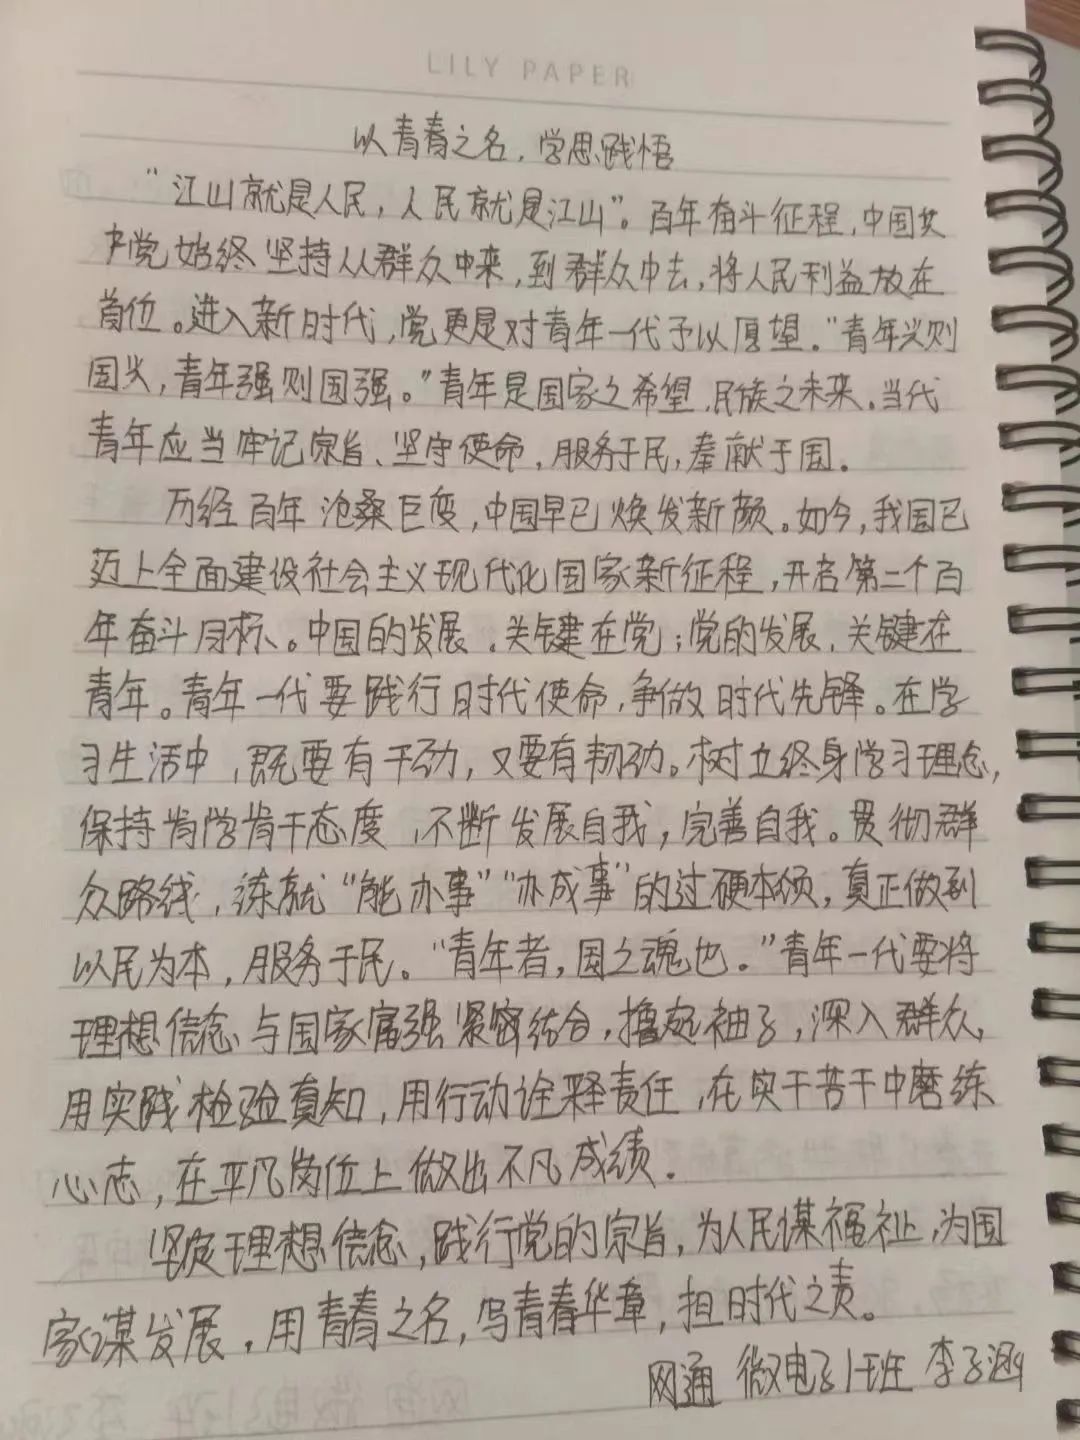 LILY PAPER
以青春之名，学思践悟
“江山就是人民，人民就是江山”。百年奋斗征程，中国共
产党始终坚持从群众中来，到群众中去，将人民利益放在
首位。进入新时代，党更是对青年一代予以厚望。“青年兴则
国兴，青年强则国强。”青年是国家之希望，民族之未来。当代
青年应当牢记宗旨、坚守使命，服务于民，奉献于国。
历经百年沧桑巨变，中国早已焕发新颜。如今，我国已
迈上全面建设社会主义现代化国家新征程，开启第二个百
年奋斗目标。中国的发展，关键在党；党的发展，关键在
青年。青年一代要践行时代使命，争做时代先锋。在学
习生活中，既要有干劲，又要有韧劲。树立终身学习理念，
保持肯学肯干态度，不断发展自我，完善自我。贯彻群
众路线，练就“能办事”“办成事”的过硬本领，真正做到
以民为本，服务于民。“青年者，国之魂也。”青年一代要将
理想信念与国家富强紧密结合，撸起袖子，深入群众，
用实践检验真知，用行动诠释责任，在实干苦干中磨练
心志，在平凡岗位上做出不凡成绩。
坚定理想信念，践行党的宗旨，为人民谋福祉，为国
家谋发展。用青春之名，写青春华章，担时代之责。
网通 微电子1班 李子涵